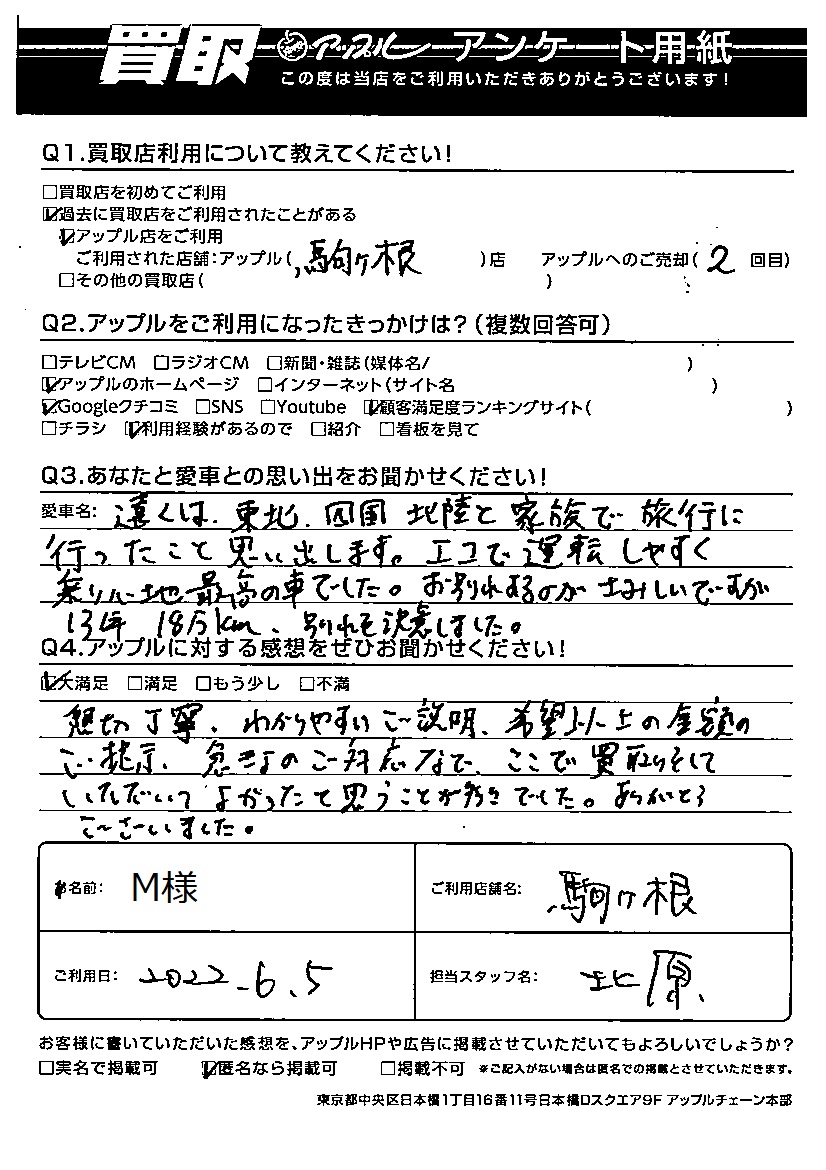 買取 アップル アンケート用紙
この度は当店をご利用いただきありがとうございます!
Q1.買取店利用について教えてください!
□買取店を初めてご利用
☑過去に買取店をご利用されたことがある
☑アップル店をご利用
ご利用された店舗:アップル(駒ヶ根)店 アップルへのご売却(2回目)
□その他の買取店( )
Q2.アップルをご利用になったきっかけは?(複数回答可)
□テレビCM □ラジオCM □新聞・雑誌(媒体名/ )
☑アップルのホームページ □インターネット(サイト名 )
☑Googleクチコミ □SNS □Youtube ☑顧客満足度ランキングサイト( )
□チラシ ☑利用経験があるので □紹介 □看板を見て
Q3.あなたと愛車との思い出をお聞かせください!
愛車名: 遠くは、東北、四国 北陸と家族で旅行に
行ったこと思い出します。エコで運転しやすく
乗り心地最高の車でした。お別れするのがさみしいですが
13年 18万km、別れを決意しました。
Q4.アップルに対する感想をぜひお聞かせください!
☑大満足 □満足 □もう少し □不満
懇切丁寧、わかりやすいご説明、希望以上の金額の
ご提示、急きょのご対応などで、ここで買取りをして
いただいてよかったと思うことが多きでした。ありがとう
ございました。
お名前: M様
ご利用店舗名: 駒ヶ根
ご利用日: 2022.6.5
担当スタッフ名: 北原
お客様に書いていただいた感想を、アップルHPや広告に掲載させていただいてもよろしいでしょうか?
□実名で掲載可 ☑匿名なら掲載可 □掲載不可 ※ご記入がない場合は匿名での掲載とさせていただきます。
東京都中央区日本橋1丁目16番11号日本橋Dスクエア9F アップルチェーン本部